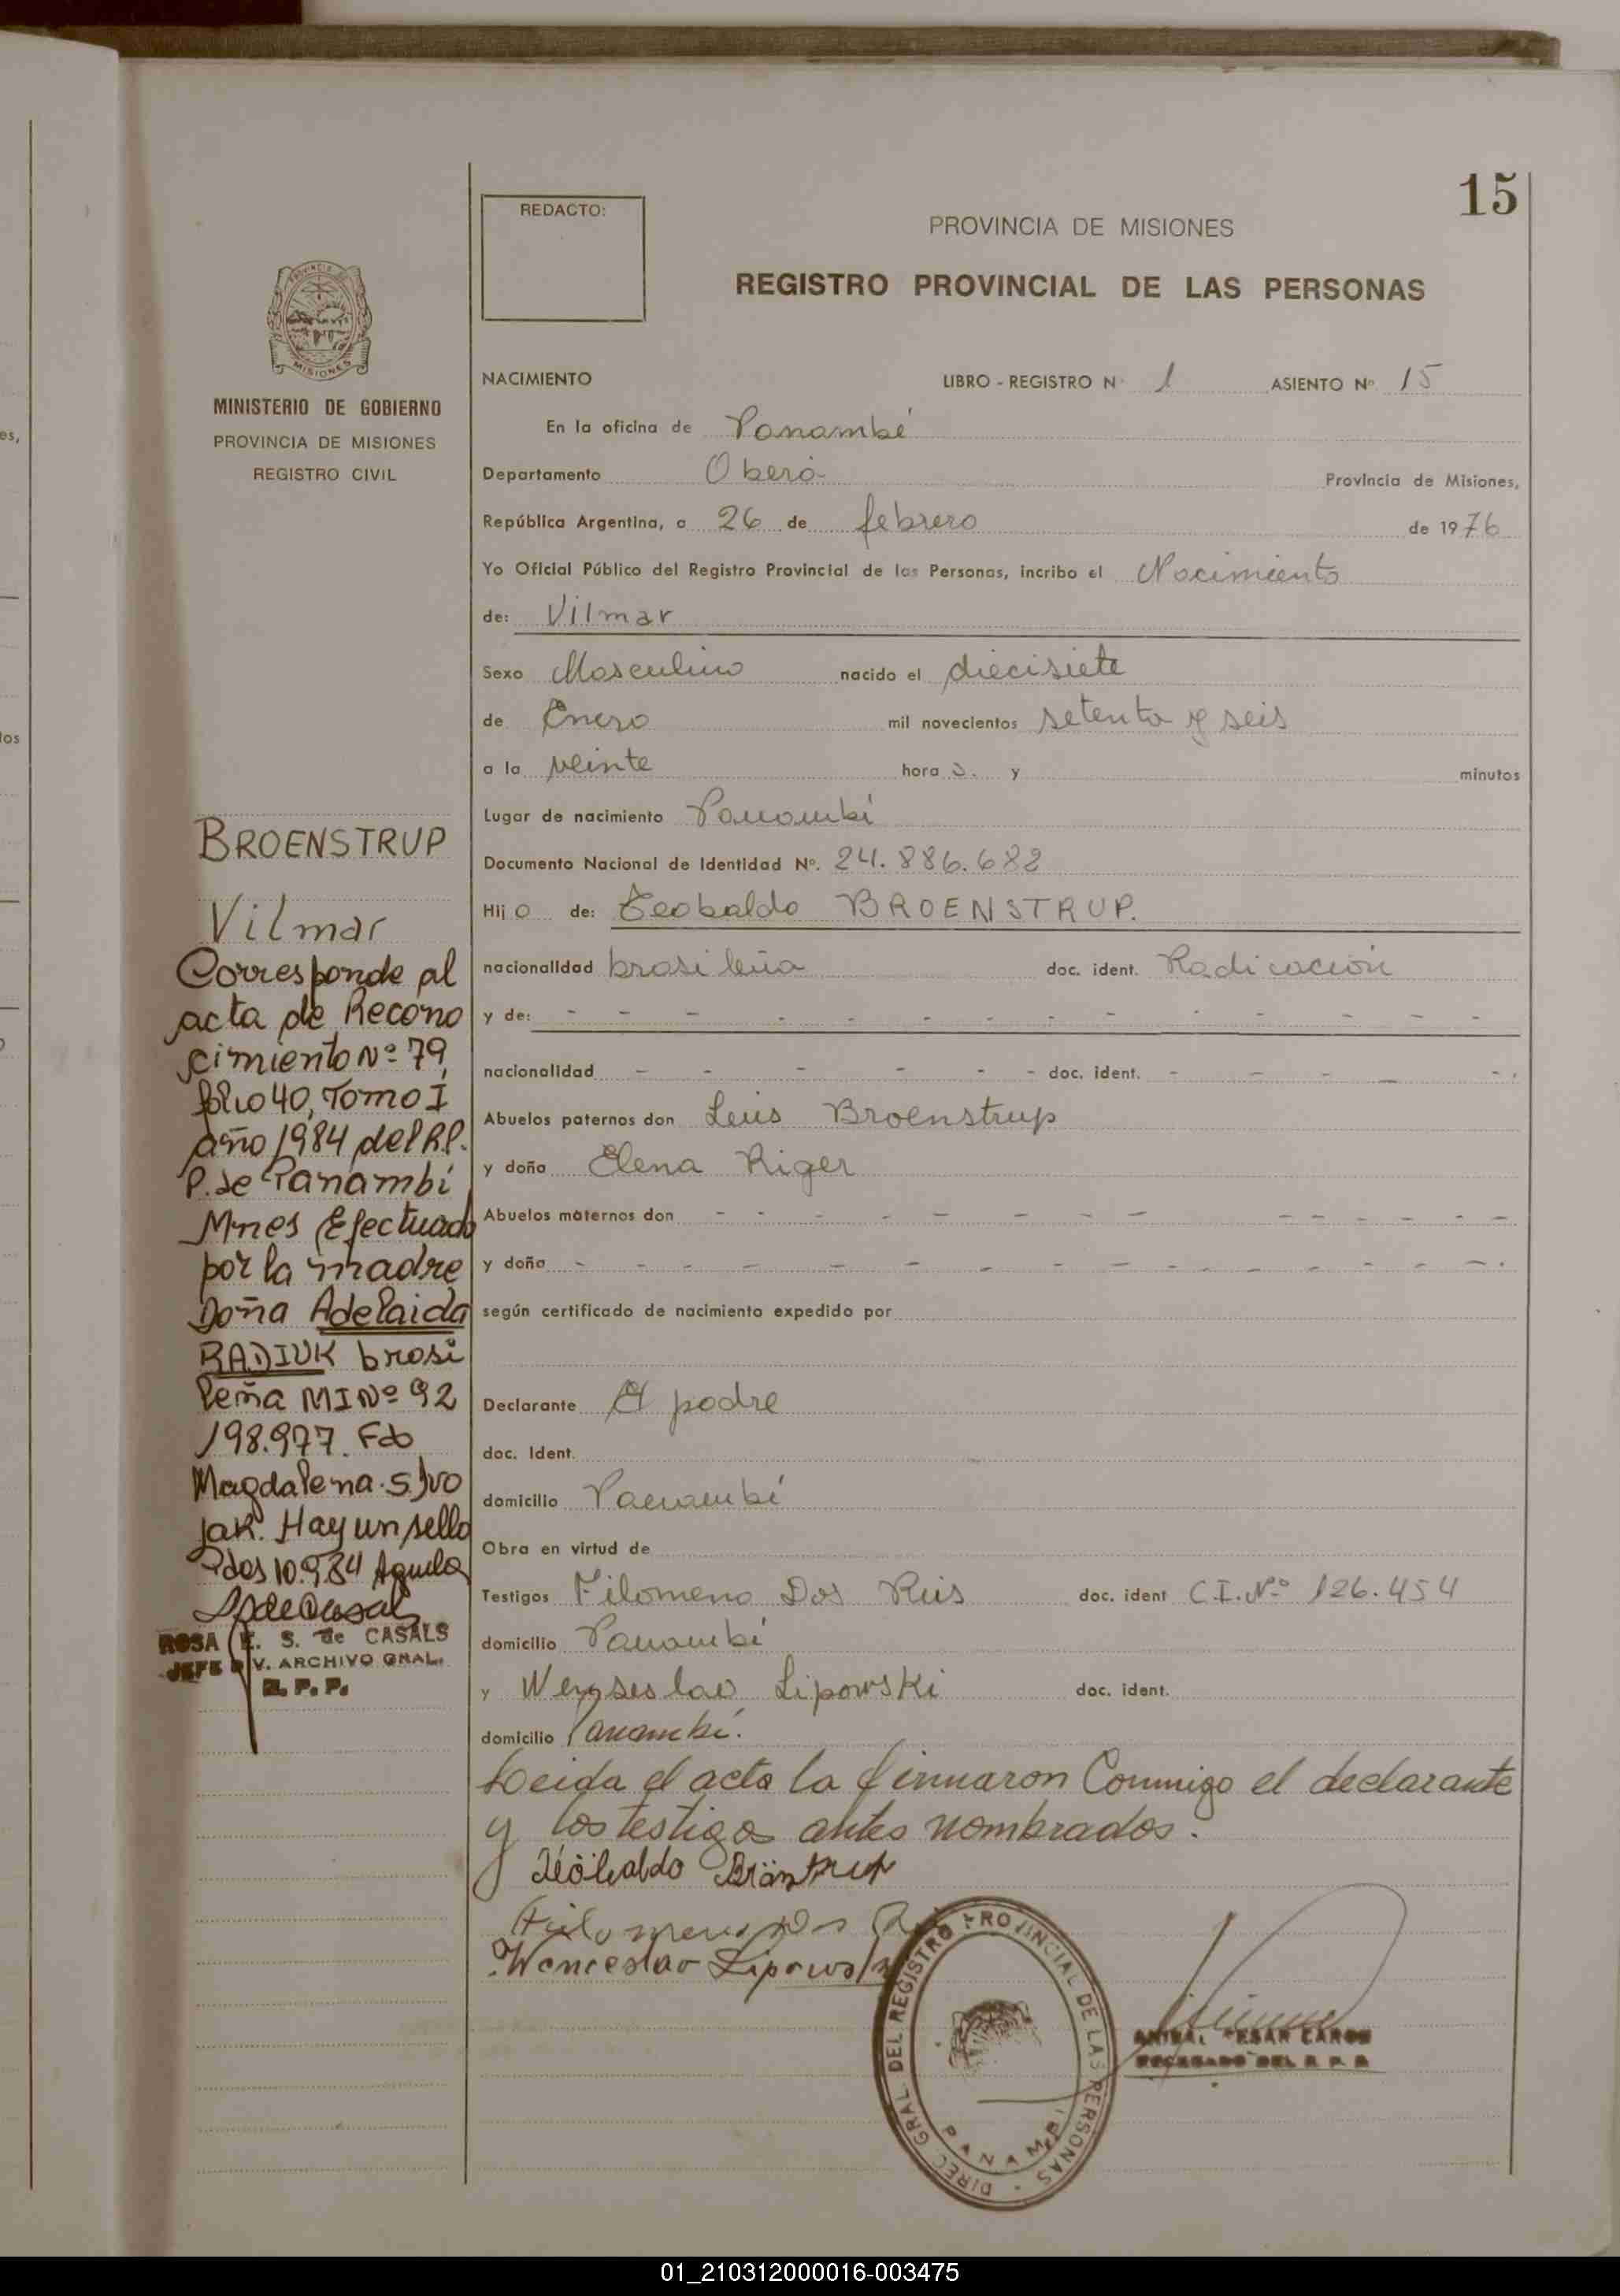 15
REDACTO:
PROVINCIA DE MISIONES
REGISTRO PROVINCIAL DE LAS PERSONAS
MISIONES
MINISTERIO DE GOBIERNO
PROVINCIA DE MISIONES
REGISTRO CIVIL
NACIMIENTO LIBRO - REGISTRO Nº 1 ASIENTO Nº 15
En la oficina de Panambí
Departamento Oberá Provincia de Misiones,
República Argentina, a 26 de febrero de 1976
Yo Oficial Público del Registro Provincial de las Personas, incribo el Nacimiento
de: Vilmar
Sexo Masculino nacido el diecisiete
de Enero mil novecientos setenta y seis
a la veinte hora s. y minutos
Lugar de nacimiento Panambí
Documento Nacional de Identidad Nº. 24.886.682
Hij o de: Teobaldo BROENSTRUP.
nacionalidad brasileña doc. ident. Radicación
y de: - - - - - - - - - - - - - -
nacionalidad - - - - - - doc. ident. - - - - - .
Abuelos paternos don Luis Broenstrup
y doña Elena Riger
Abuelos maternos don - - - - - - - - - - - - -
y doña - - - - - - - - - - - - - - - .
según certificado de nacimiento expedido por
Declarante El padre
doc. Ident.
domicilio Panambí
Obra en virtud de
Testigos Filomeno Dos Reis doc. ident C.I.Nº 126.454
domicilio Panambí
y Wenseslao Lipowski doc. ident.
domicilio Panambí.
Leida el acta la firmaron Conmigo el declarante
y los testigos antes nombrados.
Teobaldo Bröntrup
Filomeno Dos
Wenceslao Lipowski
DIREC GRAL DEL REGISTRO PROVINCIAL DE LAS PERSONAS
PANAMBI
ANIBAL CESAR CARON
DELEGADO DEL R P P
BROENSTRUP
Vilmar
Corresponde al
acta de Recono
cimiento Nº 79,
folio 40, Tomo I
año 1984 del R.P.
P. de Panambí
Mnes Efectuado
por la madre
Doña Adelaida
RADIUK brasi
leña MI Nº 92
198.977. Fdo
Magdalena. S.
Hay un sello
Pdas 10.9.84
ROSA E. S. de CASALS
JEFE DIV. ARCHIVO GRAL.
R. P. P.
es,
tos
01_210312000016-003475